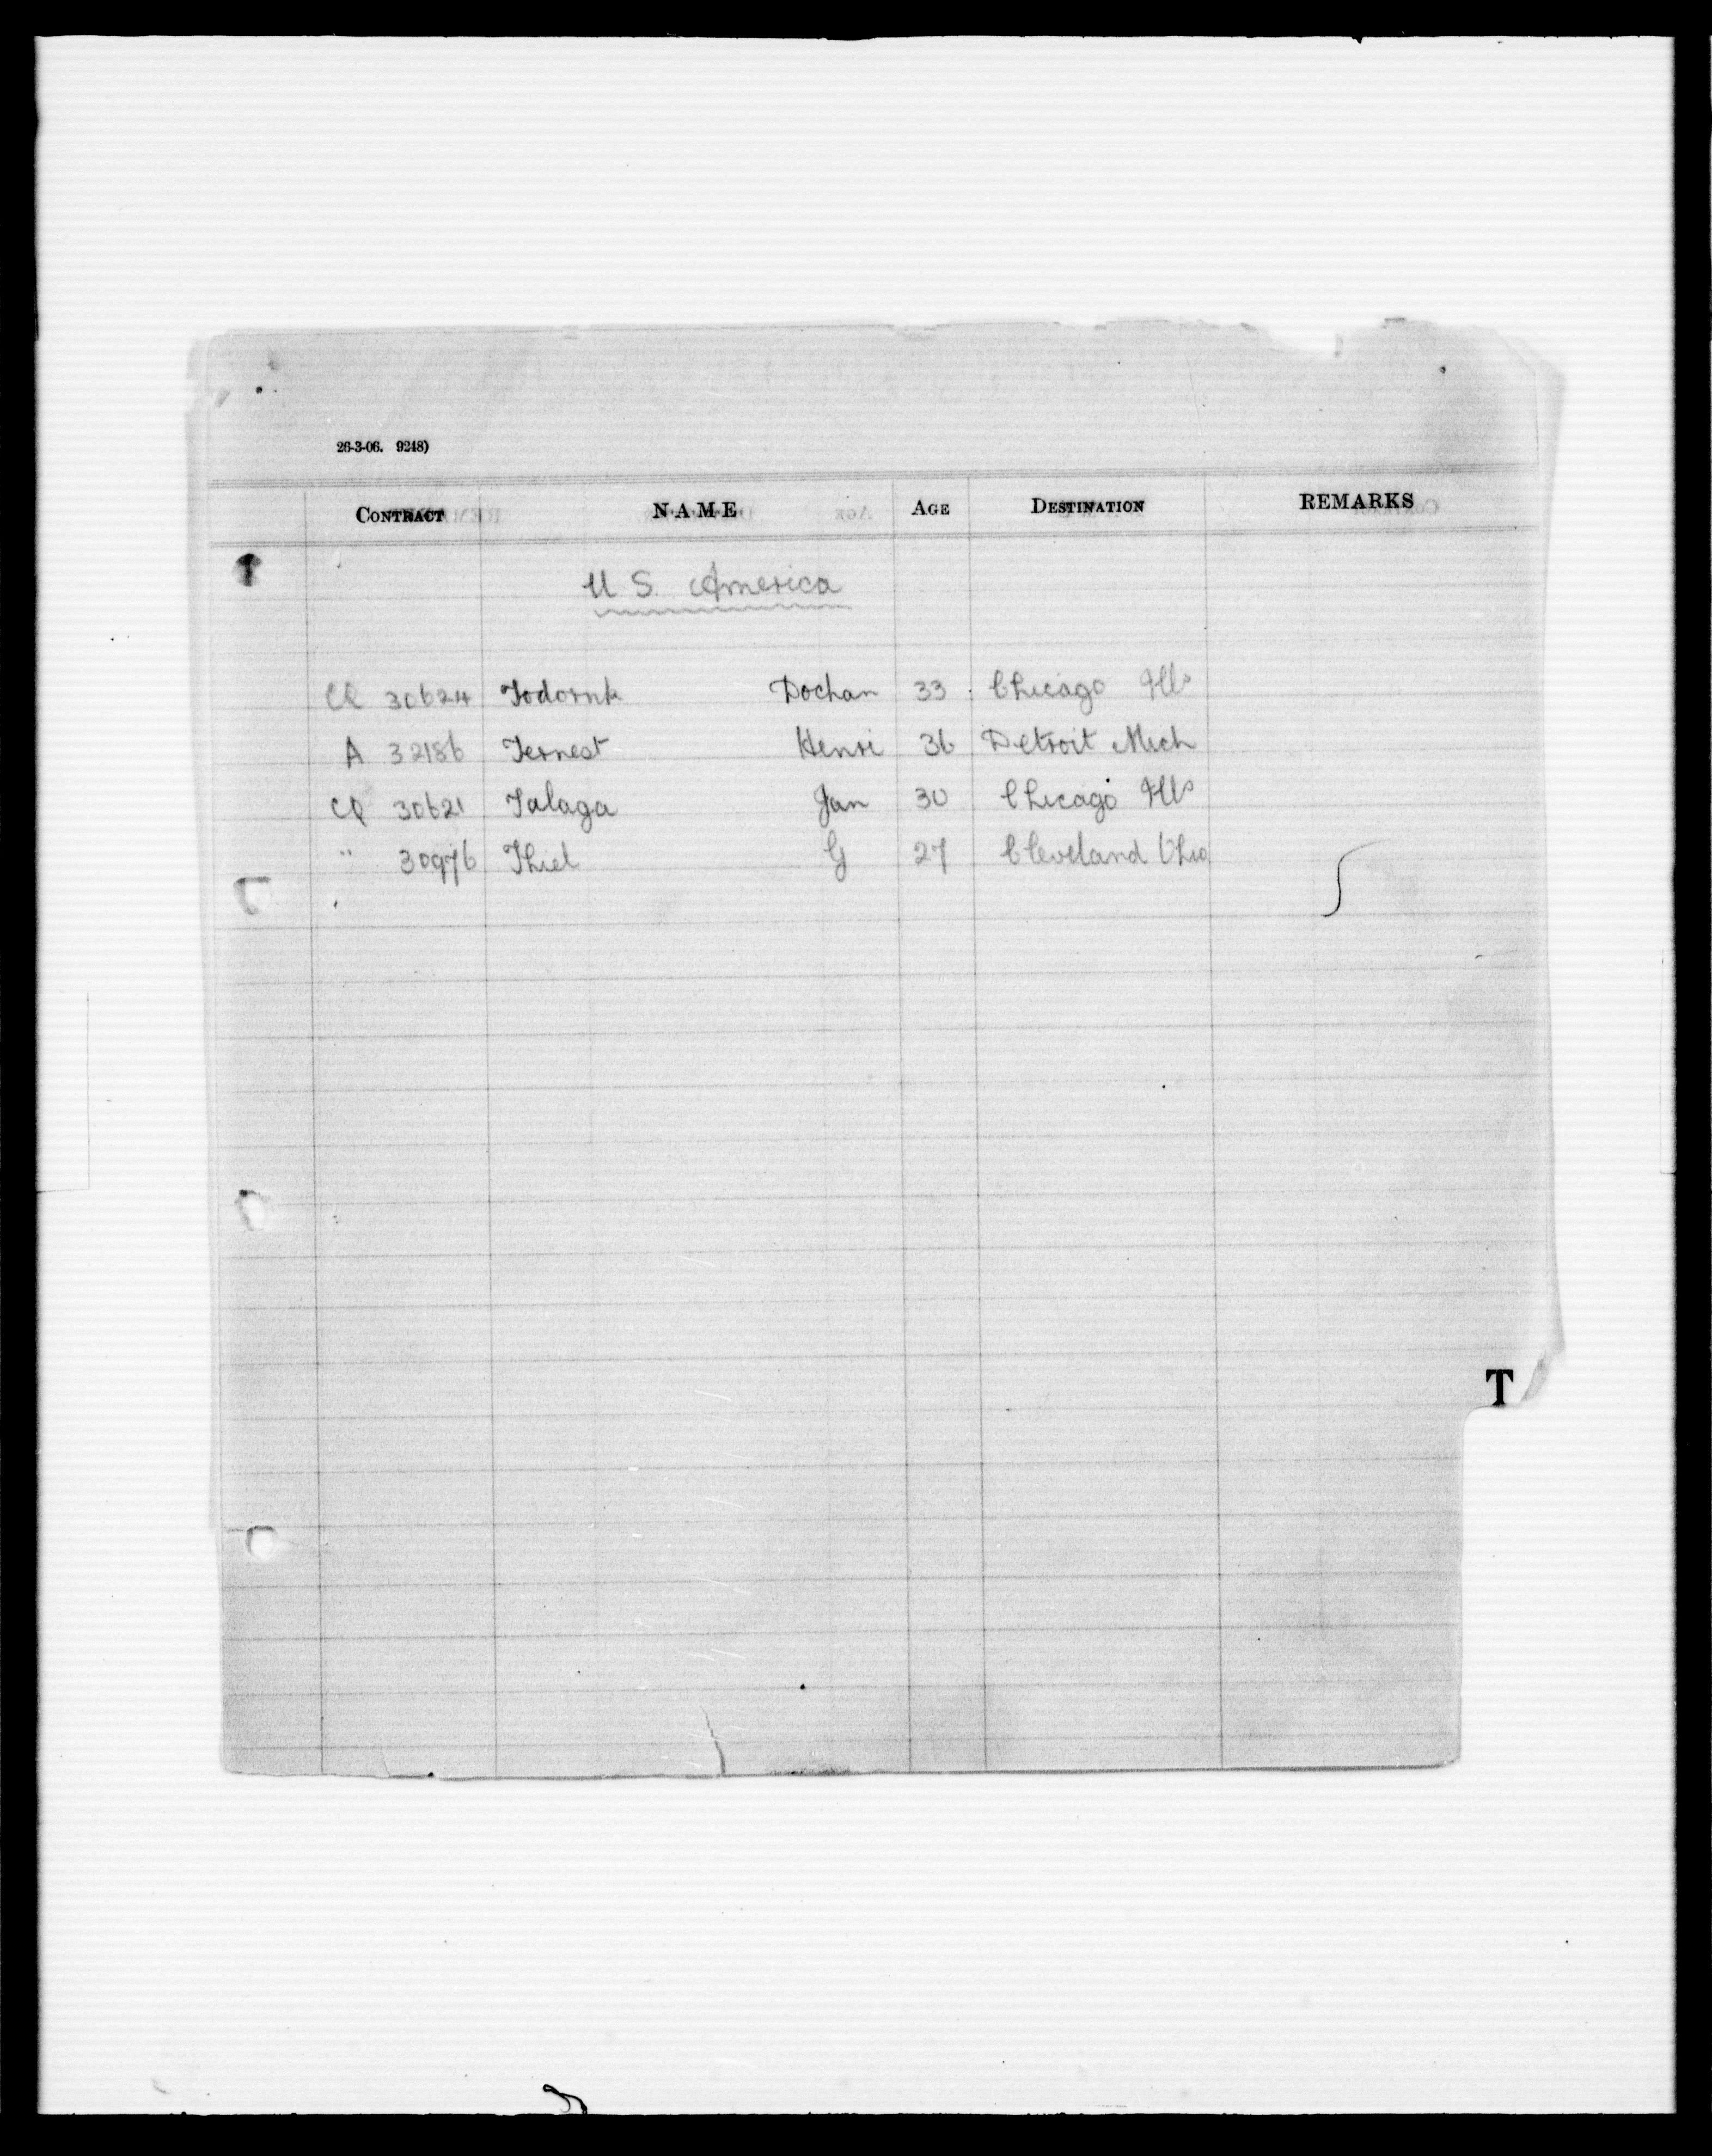 26-3-06. 9248)
CONTRACT NAME AGE DESTINATION REMARKS
U S. America
CQ 30624 Todornk Dochan 33 Chicago Ills
A 32186 Ternest Henri 36 Detroit Mich
CQ 30621 Talaga Jan 30 Chicago Ills
" 30976 Thiel G 27 Cleveland Ohio
T